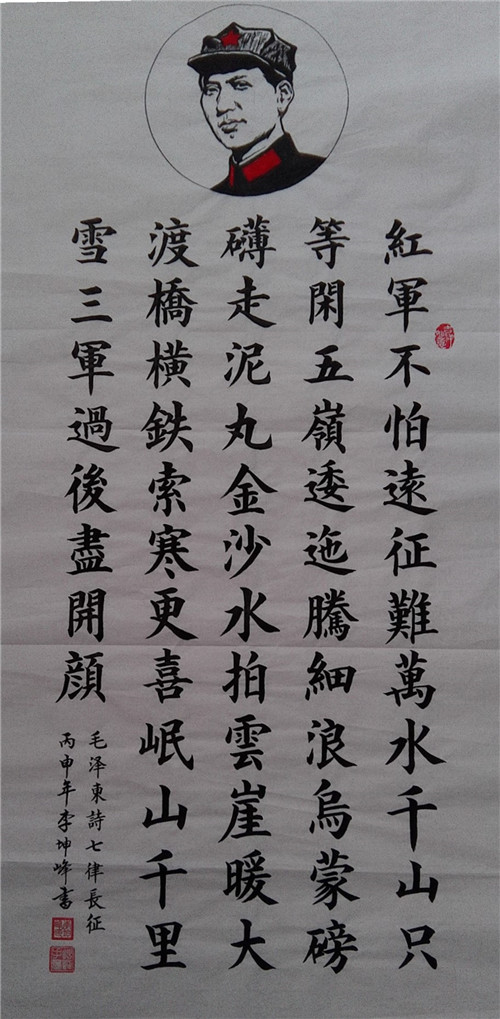 紅軍不怕遠征難萬水千山只
等閑五嶺逶迤騰細浪烏蒙磅
礴走泥丸金沙水拍雲崖暖大
渡橋橫鉄索寒更喜岷山千里
雪三軍過後盡開顔
毛泽東詩七律長征
丙申年李坤峰書